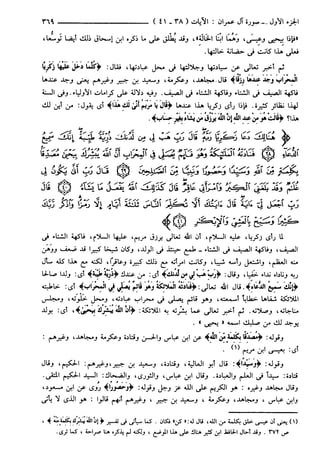 الجزء الأول - سورة آل عمران : الآيات (٣٨ - ٤١)
٣٦٩
«فإذا بيحيى وعيسى، وهما ابنا الخالة»، وقد يُطلق على ما ذكره ابن إسحاق ذلك أيضا توسُّعا،
فعلى هذا كانت في حضانة خالتها.
ثم أخبر تعالى عن سيادتها وجلالتها في محل عبادتها، فقال: ﴿كلما دخل عليها زكريا
المحراب وجد عندها رزقا﴾ قال مجاهد، وعكرمة، وسعيد بن جبير وغيرهم يعني وجد عندها
فاكهة الصيف في الشتاء وفاكهة الشتاء في الصيف. وفيه دلالة على كرامات الأولياء. وفي السنة
لهذا نظائر كثيرة. فإذا رأى زكريا هذا عندها ﴿قال يا مريم أنى لك هذا﴾ أي يقول: من أين لك
هذا؟ ﴿قالت هو من عند الله إن الله يرزق من يشاء بغير حساب﴾.
هنالك دعا زكريا ربه قال رب هب لي من لدنك ذرية طيبة إنك سميع
الدعاء فنادته الملائكة وهو قائم يصلي في المحراب أن الله يبشرك بيحيى
مصدقا بكلمة من الله وسيدا وحصورا ونبيا من الصالحين قال رب أنى يكون لي
غلام وقد بلغني الكبر وامرأتي عاقر قال كذلك الله يفعل ما يشاء قال
رب اجعل لي آية قال آيتك ألا تكلم الناس ثلاثة أيام إلا رمزا واذكر ربك
كثيرا وسبح بالعشي والإبكار
لما رأى زكريا، عليه السلام، أن الله تعالى يرزق مريم، عليها السلام، فاكهة الشتاء في
الصيف، وفاكهة الصيف في الشتاء - طمع حينئذ في الولد، وكان شيخا كبيرا قد ضعف ووهن
منه العظم، واشتعل رأسه شيبا، وكانت امرأته مع ذلك كبيرة وعاقرا، لكنه مع هذا كله سأل
ربه وناداه نداء خفيا، وقال: ﴿رب هب لي من لدنك﴾ أي: من عندك ﴿ذرية طيبة﴾ أي: ولدا صالحا
﴿إنك سميع الدعاء﴾. قال الله تعالى: ﴿فنادته الملائكة وهو قائم يصلي في المحراب﴾ أي: خاطبته
الملائكة شفاها خطابا أسمعته، وهو قائم يصلي في محراب عبادته، ومحل خلوته، ومجلس
مناجاته، وصلاته. ثم أخبر تعالى عما بشرته به الملائكة: ﴿أن الله يبشرك بيحيى﴾، أي: بولد
يوجد لك من صلبك اسمه «يحيى».
وقوله: ﴿مصدقا بكلمة من الله﴾ عن ابن عباس والحسن وقتادة وعكرمة ومجاهد، وغيرهم :
أي: بعيسى ابن مريم (١).
وقوله: ﴿وسيدا﴾: قال أبو العالية، وقتادة، وسعيد بن جبير، وغيرهم: الحكيم، وقال
قتادة: سيداً في العلم والعبادة. وقال ابن عباس، والثوري، والضحاك: السيد الحكيم التقي.
وقال مجاهد وغيره : هو الكريم على الله عز وجل وقوله: ﴿وحصورا﴾ روي عن ابن مسعود،
وابن عباس ، ومجاهد، وعكرمة ، وسعيد بن جبير ، وغيرهم أنهم قالوا : هو الذي لا يأتي
(١) يعني أن عيسى خلق بكلمة من الله، قال له: كن فكان . كما سيأتي في تفسير ﴿إن الله يبشرك بكلمة منه﴾ ،
ص ٣٧٢ . وقد أحال الحافظ ابن كثير هناك على هذا الموضع ، ولكنه لم يذكره هنا صراحة ، كما ترى.